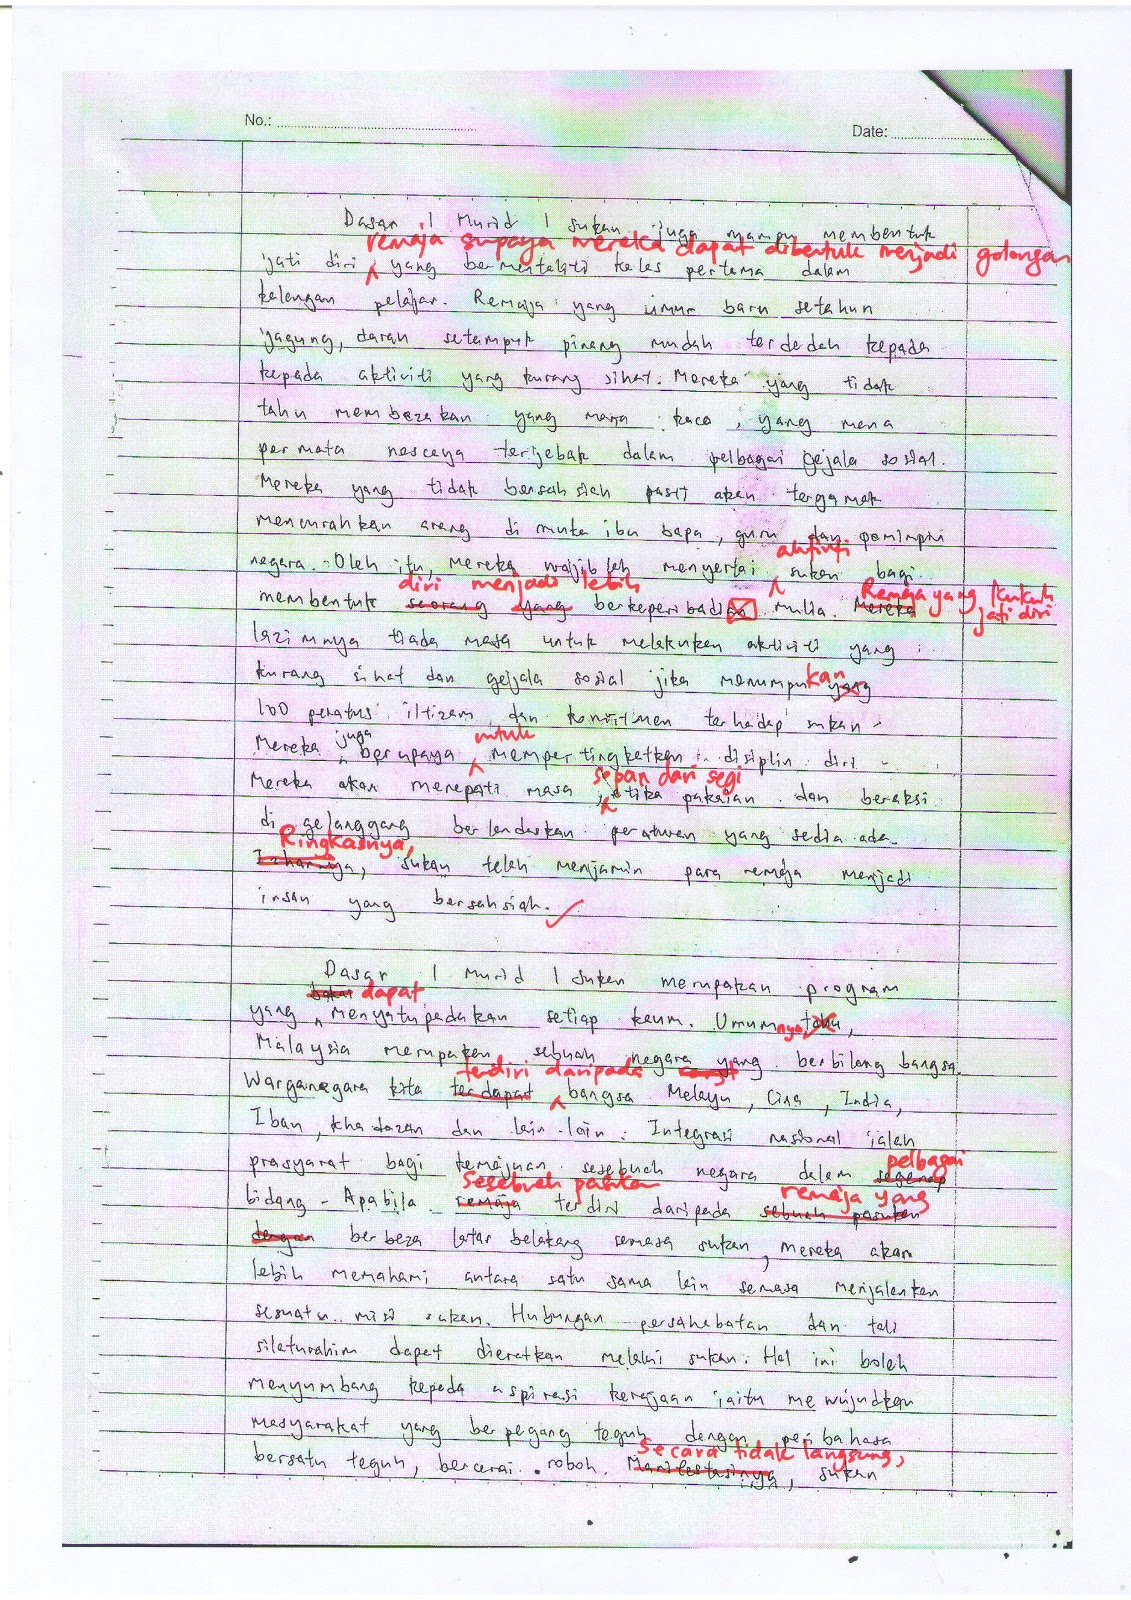 No.:
Date:
Dasar 1 Murid 1 sukan juga mampu membentuk
remaja supaya mereka dapat dibentuk menjadi golongan
jati diri yang bermentaliti kelas pertama dalam
kalangan pelajar. Remaja yang umur baru setahun
jagung, darah setampuk pinang mudah terdedah kepada
kepada aktiviti yang kurang sihat. Mereka yang tidak
tahu membezakan yang mana kaca, yang mana
permata nescaya terjebak dalam pelbagai gejala sosial.
Mereka yang tidak bersahsiah pasti akan tergamak
mencurahkan arang di muka ibu bapa, guru dan pemimpin
aktiviti
negara. Oleh itu, mereka wajiblah menyertai sukan bagi
diri menjadi lebih Remaja yang kukuh
membentuk seorang yang berkeperibadian mulia. Mereka jati diri
lazimnya tiada masa untuk melakukan aktiviti yang
kan
kurang sihat dan gejala sosial jika menumpu yang
100 peratus iltizam dan komitmen terhadap sukan.
juga untuk
Mereka berupaya mempertingkatkan disiplin diri.
sopan dari segi
Mereka akan menepati masa, etika pakaian dan beraksi
di gelanggang berlandaskan peraturan yang sedia ada.
Ringkasnya,
, sukan telah menjamin para remaja menjadi
insan yang bersahsiah.
Dasar 1 Murid 1 sukan merupakan program
bakal dapat
yang menyatupadakan setiap kaum. Umumnya tahu,
Malaysia merupakan sebuah negara yang berbilang bangsa.
terdiri daripada
Warganegara kita terdapat bangsa Melayu, Cina, India,
Iban, khadazan dan lain-lain. Integrasi nasional ialah
pelbagai
prasyarat bagi kemajuan sesebuah negara dalam segenap
sesebuah pasukan remaja yang
bidang. Apabila remaja terdiri daripada sebuah pasukan
dengan berbeza latar belakang semasa sukan, mereka akan
lebih memahami antara satu sama lain semasa menjalankan
sesuatu misi sukan. Hubungan persahabatan dan tali
silaturahim dapat dieratkan melalui sukan. Hal ini boleh
menyumbang kepada aspirasi kerajaan iaitu mewujudkan
masyarakat yang berpegang teguh dengan peribahasa
Secara tidak langsung,
bersatu teguh, bercerai roboh. Manifestasinya, sukan